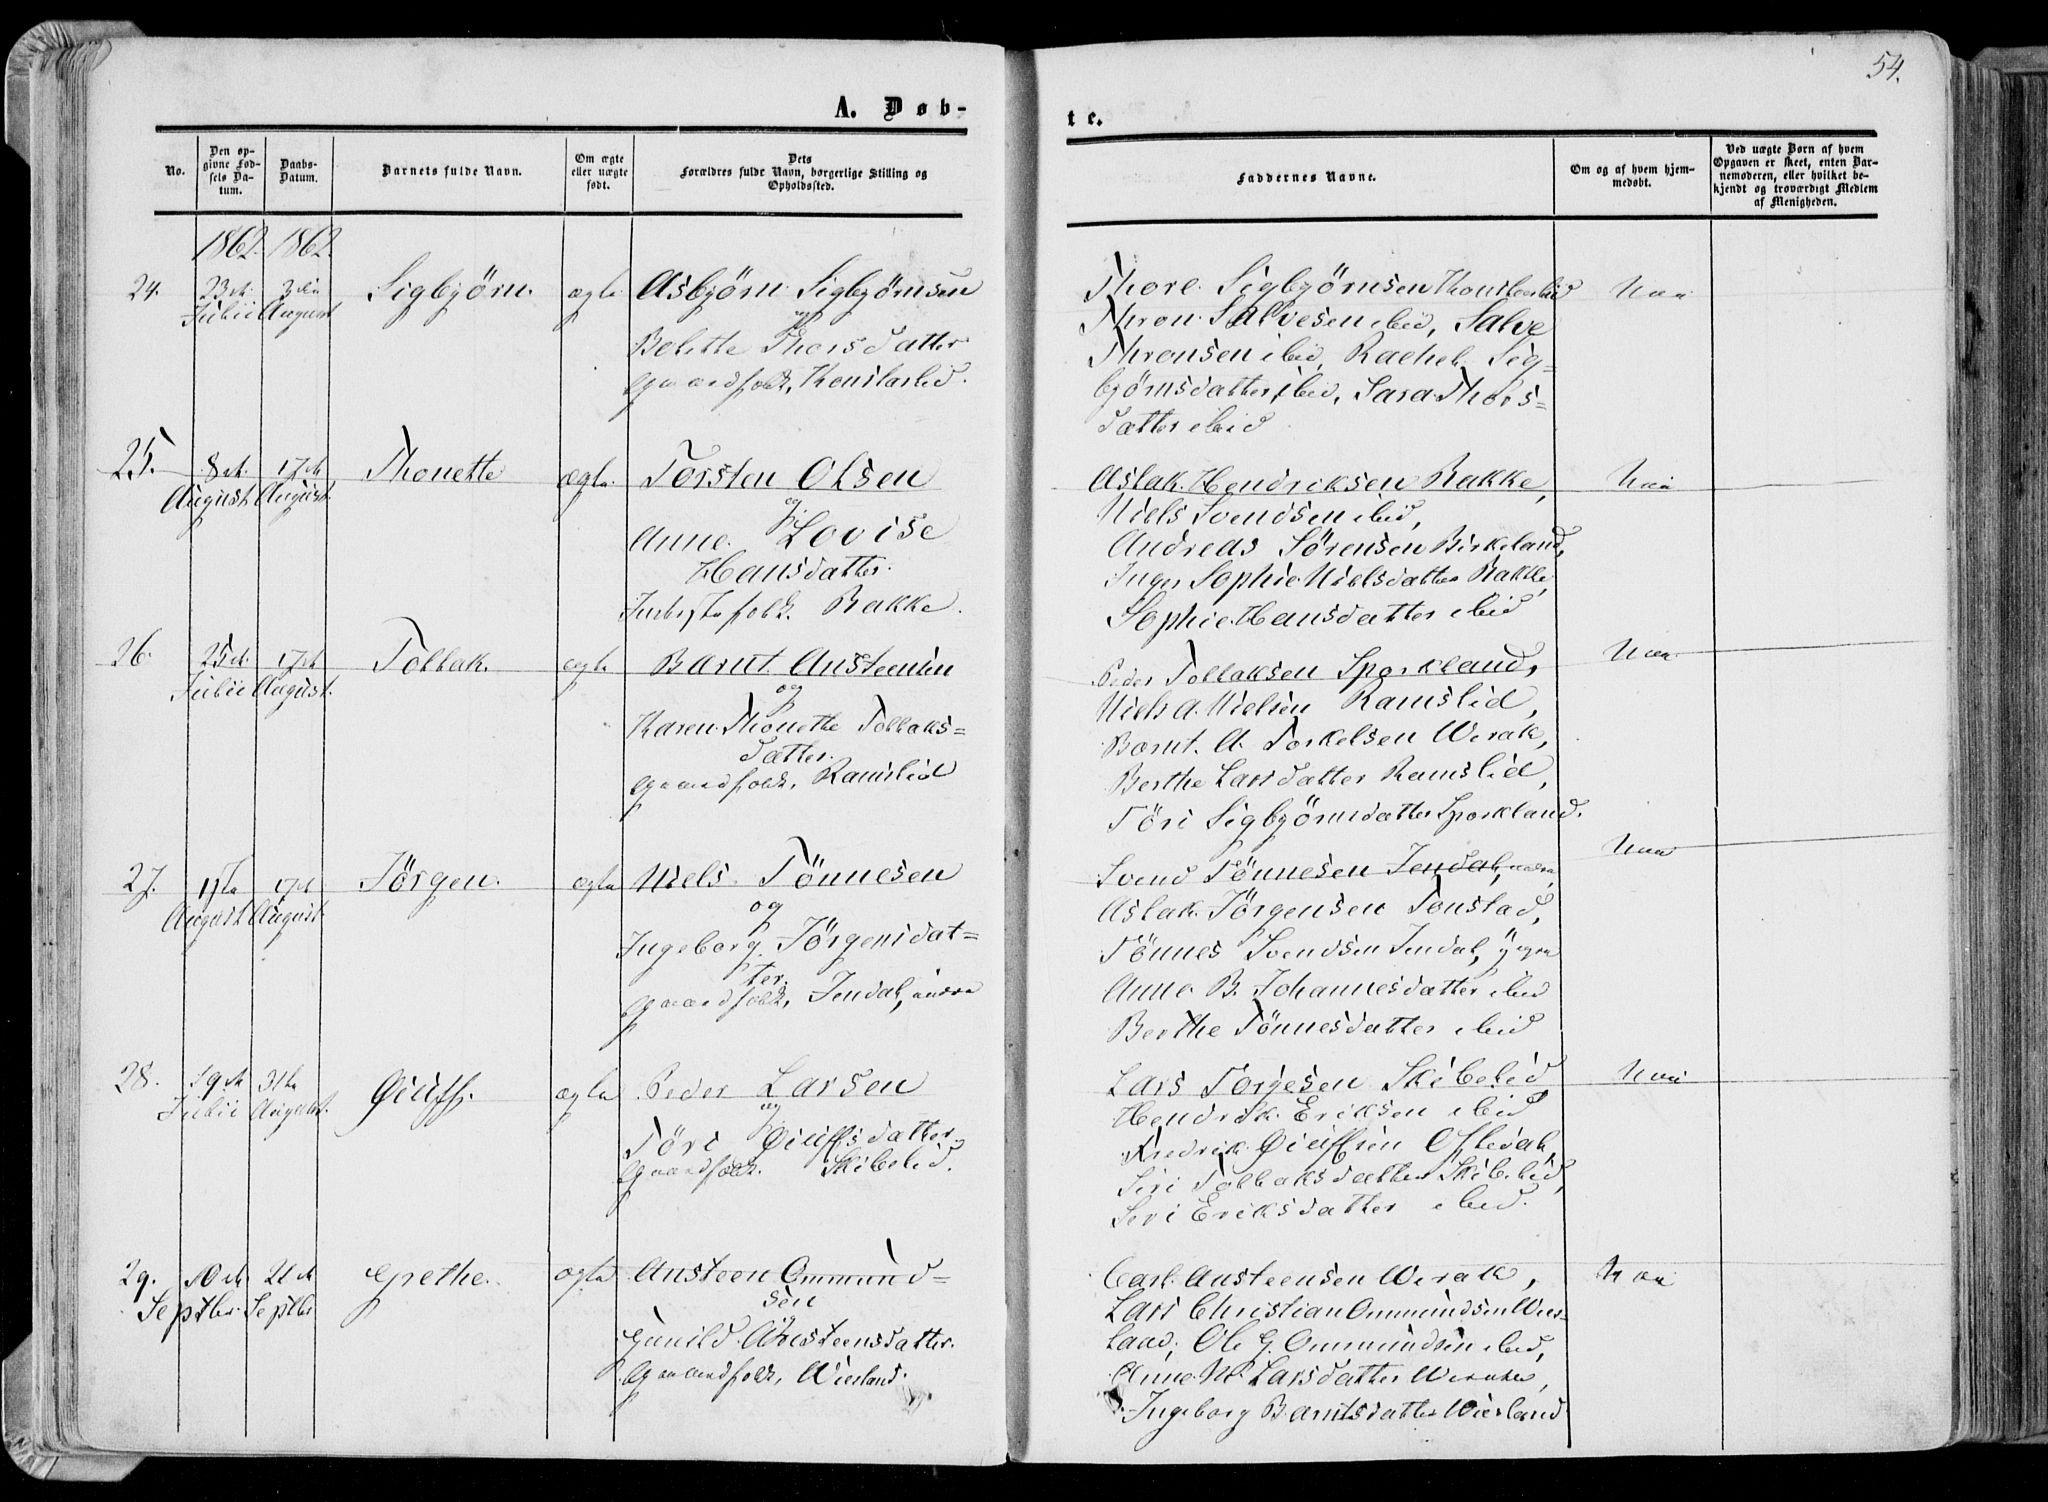 54.
A. Døb-
te.
No.
Den op-
givne Fød-
sels Da-
tum.
Daabs-
Datum.
Barnets fulde Navn.
Om ægte
eller uægte
født.
Dets
Forældres fulde Navn, borgerlige Stilling og
Opholdssted.
Faddernes Navne.
Om og af hvem hjem-
medøbt.
Ved uægte Børn af hvem
Opgaven er skeet, enten Bar-
nemoderen, eller hvilket be-
kjendt og troværdigt Medlem
af Menigheden.
1862. 1862.
24. 23de 3die Sigbjörn. ægte Asbjörn Sigbjörnsen
Julii August og
Belette Thorsdatter
Gaardfolk,
Thore Sigbjörnsen
Thron Salvesen ibid, Salve
Thronsen ibid, Rachel Sig-
björnsdatter ibid, Sara Thors-
datter ibid
25. 8de 17de Thonette ægte. Torsten Olsen
August August og
Anne Lovise
Hansdatter
Rakke.
Aslak Hendriksen Rakke,
Niels Svendsen ibid,
Andreas Sørensen Birkeland,
Inger Sophie Nielsdatter Rakke
Sophie Hansdatter ibid
26. 25de 17de Tollak. ægte Bernt Austeensen
Julii August. og
Karen Thonette Tollaks-
datter.
Gaardfolk, Ramslid
Peder Tollaksen Sporkland,
Niels A. Nielsen Ramslid,
Bernt A. Torkelsen Werak,
Berthe Larsdatter Ramslid,
Töri Sigbjörnsdatter Sporkland.
27. 17de Jörgen. ægte Niels Tönnesen
August August og
Ingeborg Jörgensdat-
ter.
Gaardfolk, Jendal,
Svend Tönnesen Jendal,
Aslak Jörgensen Tonstad,
Tönnes Svendsen Jendal,
Anne B. Johannesdatter ibid
Berthe Tönnesdatter ibid
28. 19de 31te ægte Peder Larsen
Julii August. og
Töri
Gaardfolk. Skibelid.
Lars Torgesen Skibelid
Hendrik Eriksen ibid
Fredrik
Siri Tollaksdatter Skibelid,
Seri Eriksdatter ibid.
29. 10de 21de Grethe. ægte Austeen Ommund-
Septbr. Septbr sen
Gunild Austeensdatter.
Gaardfolk, Wiesland.
Carl Austeensen Werak,
Lars Christian Ommundsen Wies-
land, Ole G. Ommundsen ibid,
Anne M. Larsdatter
Ingeborg Berntsdatter Wiesland